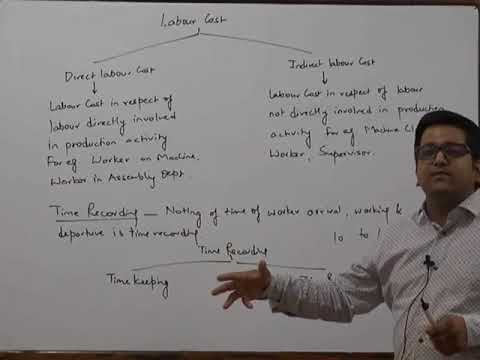 Labour Cost
Direct labour Cost
Labour Cost in respect of
labour directly involved
in production activity
For eg Worker on Machine,
Worker in Assembly Dept.
Indirect labour Cost
Labour Cost in respect of labour
not directly involved in production
activity For eg Machine Cl
Worker, Supervisor.
Time Recording — Noting of time of worker arrival, working &
departure is time recording
10 to 1
Time Recording
Time Keeping